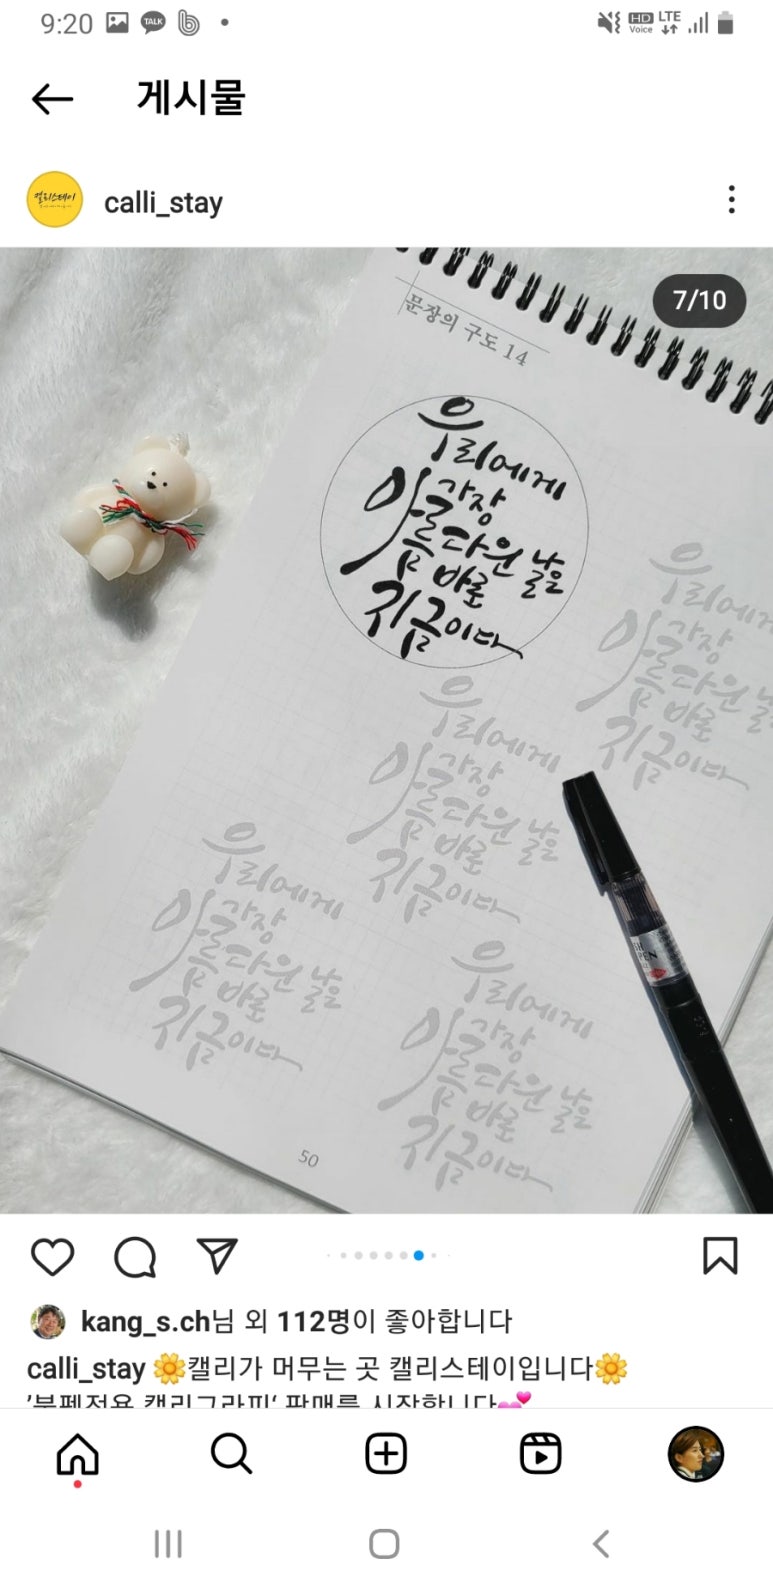 9:20 TALK HD Voice LTE
게시물
캘리스테이
calli_stay
7/10
문장의 구도 14
우리에게
가장
아름다운 날은
바로
지금이다
우리에게
가장
아름다운 날은
바로
지금이다
우리에게
가장
아름다운 날은
바로
지금이다
우리에게
가장
아름다운 날은
바로
지금이다
우리에게
가장
아름다운 날은
바로
지금이다
PEN
50
kang_s.ch님 외 112명이 좋아합니다
calli_stay 🌼캘리가 머무는 곳 캘리스테이입니다🌼
'붓펜전용 캘리그라피' 판매를 시작합니다💕